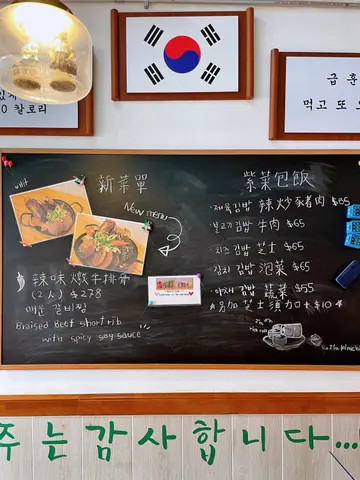 급훈
칼로리
먹고 또
新菜單
New menu
辣味燉牛排骨
(2人) $278
매운 갈비찜
Braised Beef short rib
with spicy soy sauce
紫菜包飯
·제육김밥 辣炒豬肉 $65
·불고기김밥 牛肉 $65
·치즈 김밥 芝士 $65
·김치 김밥 泡菜 $65
·야채 김밥 蔬菜 $55
另加芝士須加+$10
주는감사합니다...